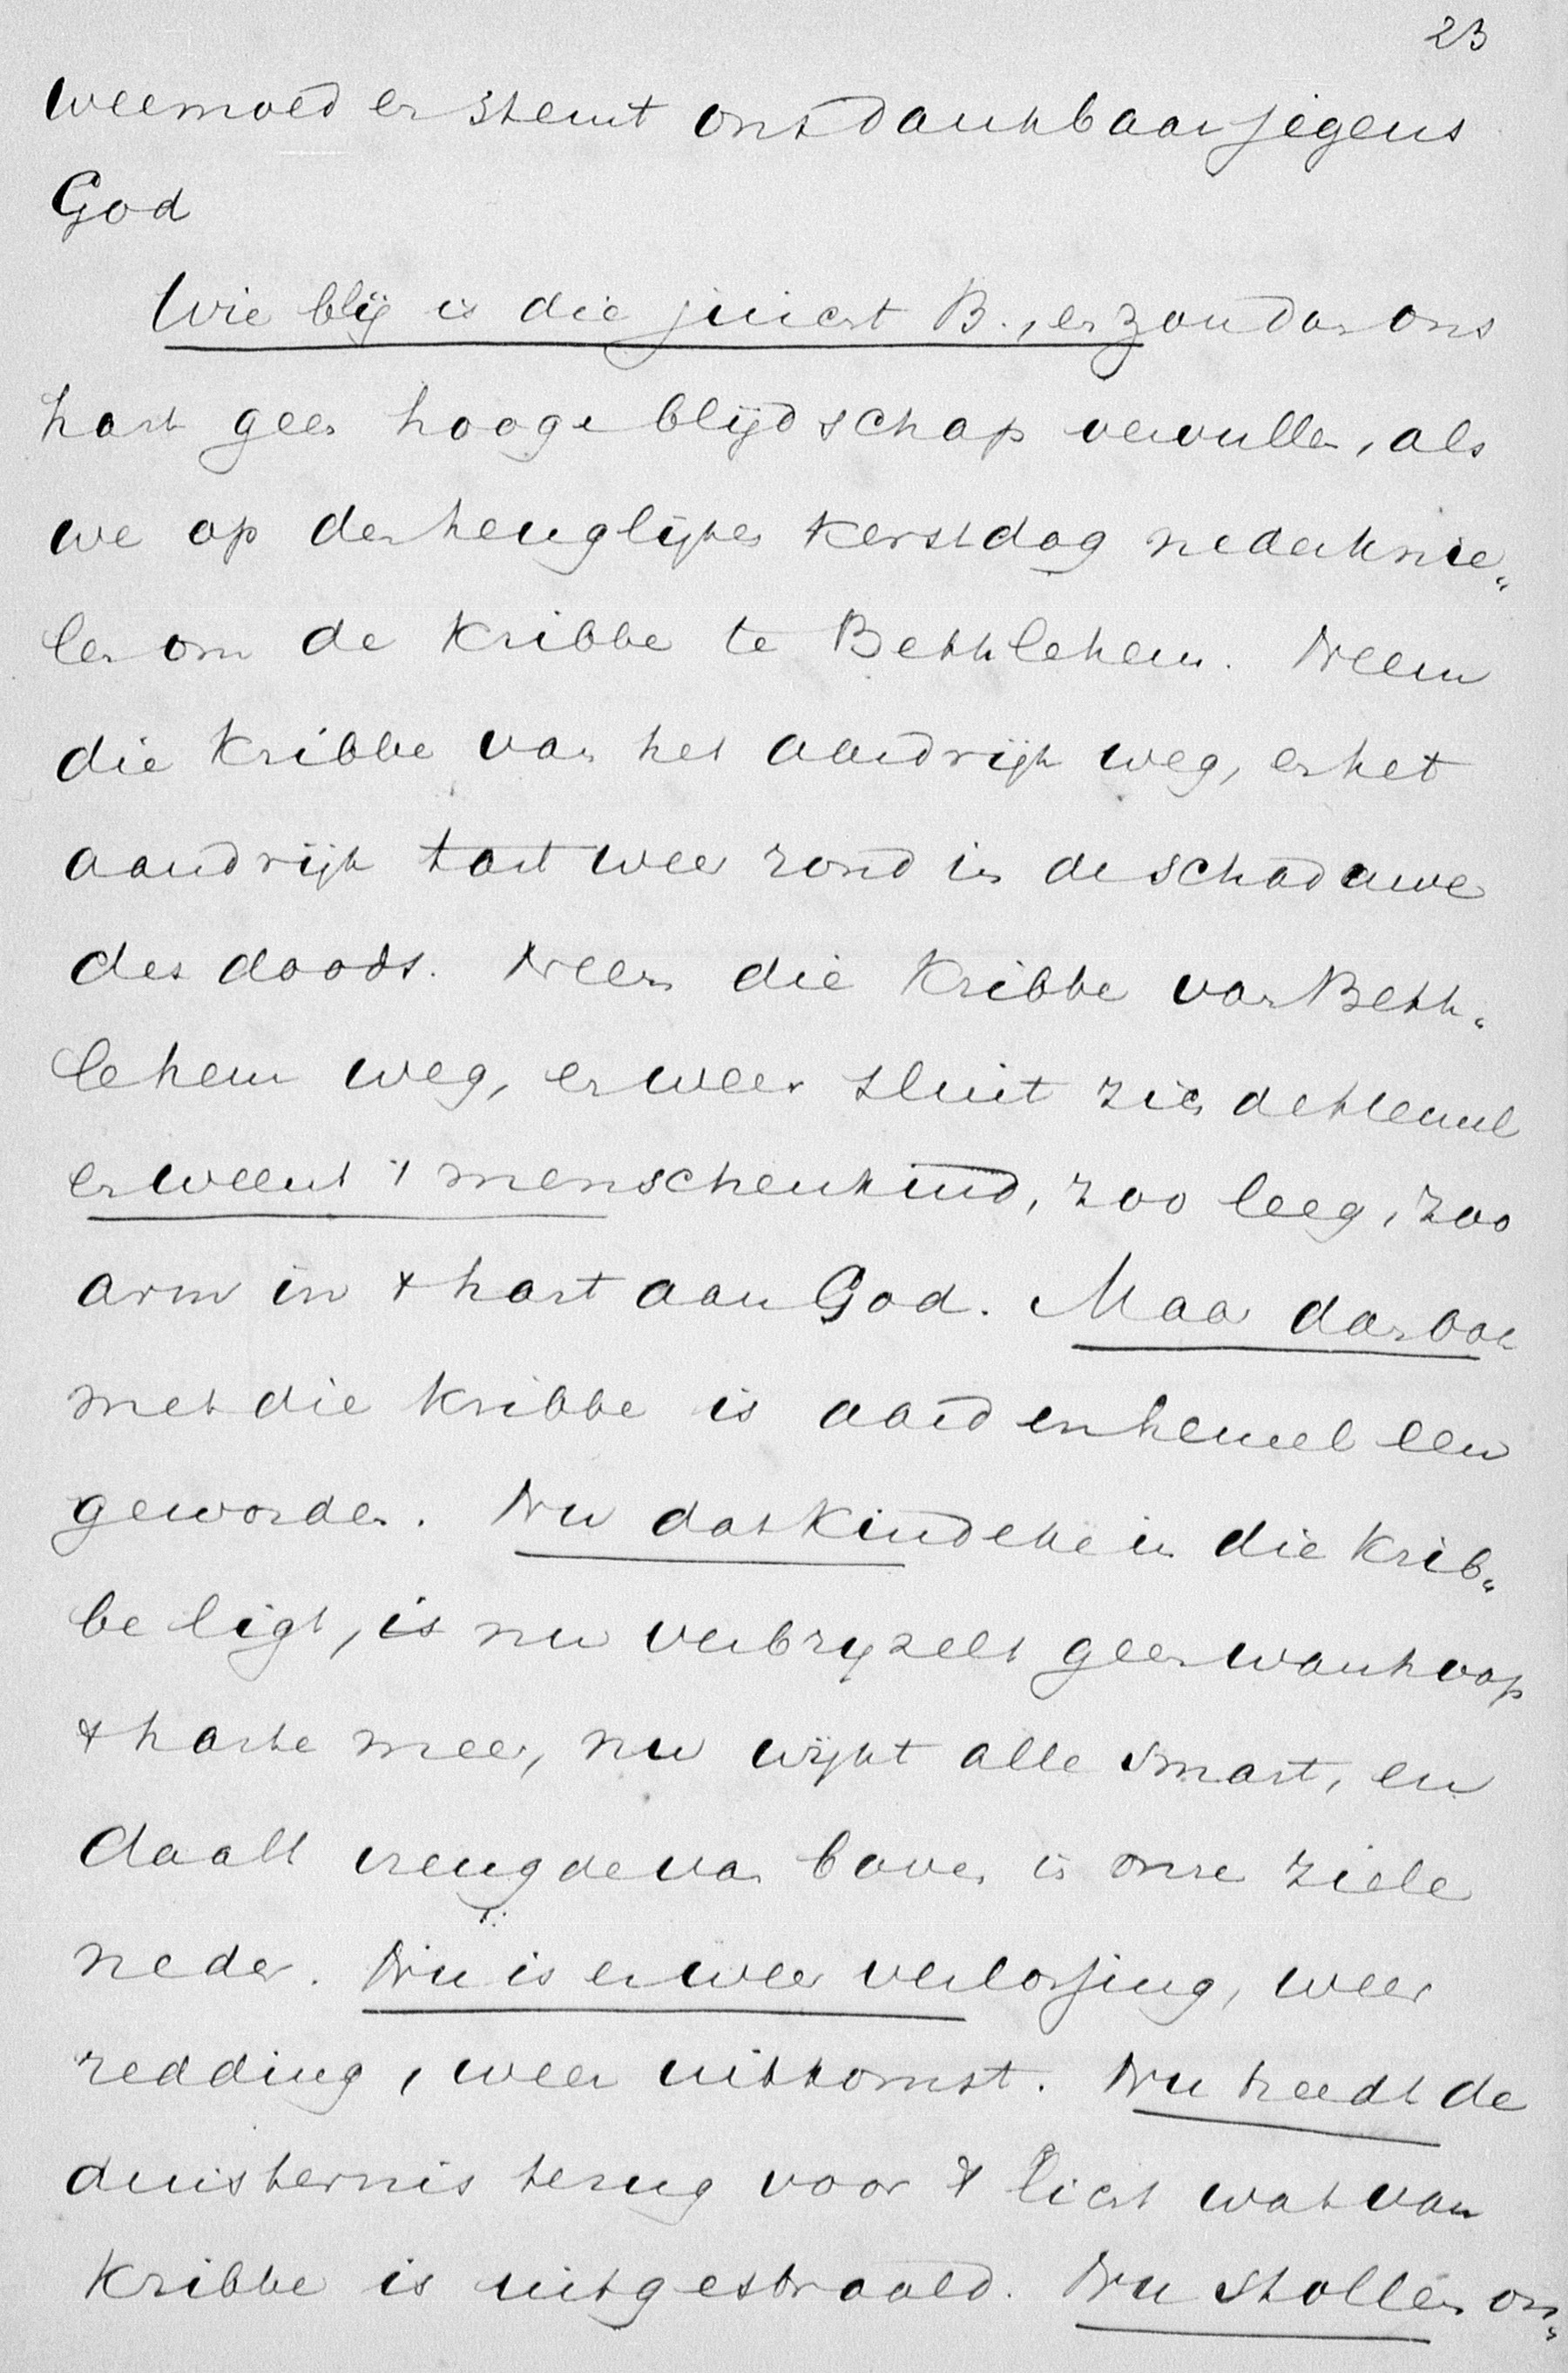 23
weemoed en stemt ons dankbaar jegens
God
Wie blij is die juicht B., en zou dan ons
hart geen hooge blijdschap vervullen, als
we op den heuglijken Kerstdag nederknie„
len om de Kribbe te Bethlehem. Neem
die Kribbe van het aardrijk weg, en het
aardrijk tast weer rond in de schaduwe
des doods. Neem die Kribbe van Beth„
lehem weg, en weer sluit zich de hemel
en weent 't menschenkind, zoo leeg, zoo
arm in 't hart aan God. Maar dan ook
met die kribbe is aard en hemel een
geworden. Nu dat Kindeke in die Krib„
be ligt, is nu verbryzelt geen wanhoop
't harte meer, nu wijkt alle smart, en
daalt vreugde van boven in onze ziele
neder. Nu is er weer verlossing, weer
redding, weer uitkomst. Nu treedt de
duisternis terug voor 't licht wat van
Kribbe is uitgestraald. Nu stollen on„